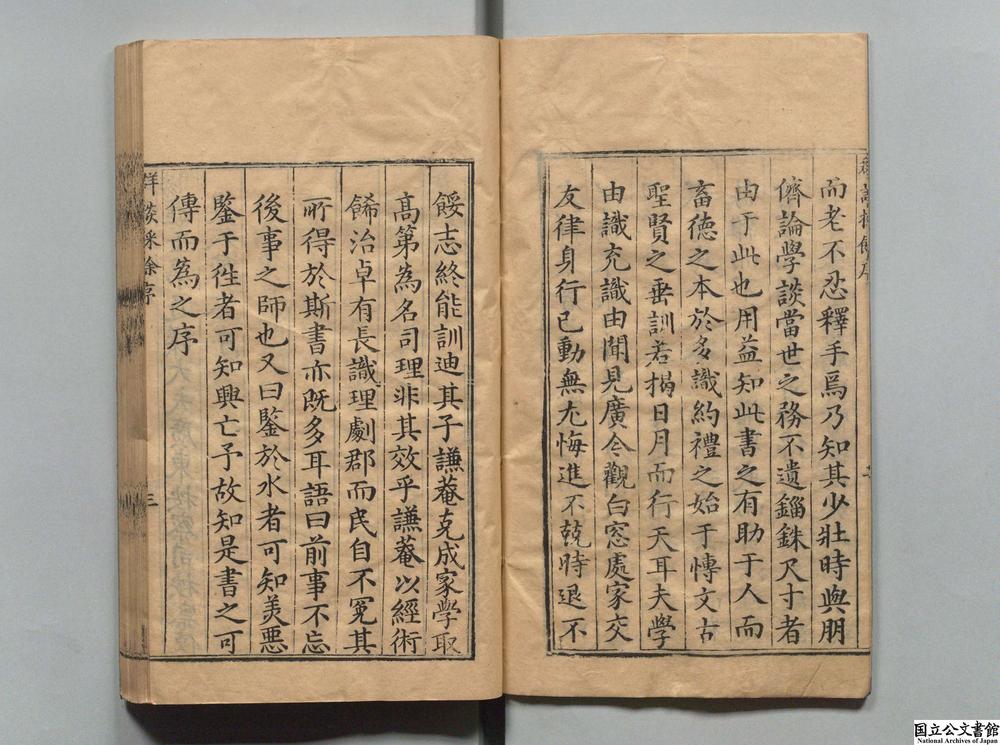 而老不忍釋手焉乃知其少壯時與朋
儕論學談當世之務不遺錙銖尺寸者
由于此也用益知此書之有助于人而
畜德之本於多識約禮之始于博文古
聖賢之垂訓若揭日月而行天耳夫學
由識充識由聞見廣今觀白窓處家交
友律身行已動無尤悔進不兢時退不
餒志終能訓迪其子謙菴克成家學取
高第為名司理非其效乎謙菴以經術
餙治卓有長識理劇郡而民自不冤其
所得於斯書亦既多耳語曰前事不忘
後事之師也又曰鑒於水者可知美惡
鑒于徃者可知興亡予故知是書之可
傳而為之序
序
三
国立公文書館
National Archives of Japan